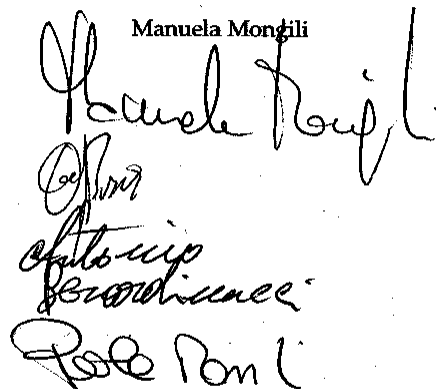 Manuela Mongili
Manuela Mongili
Antonio
Berardinucci
Paola